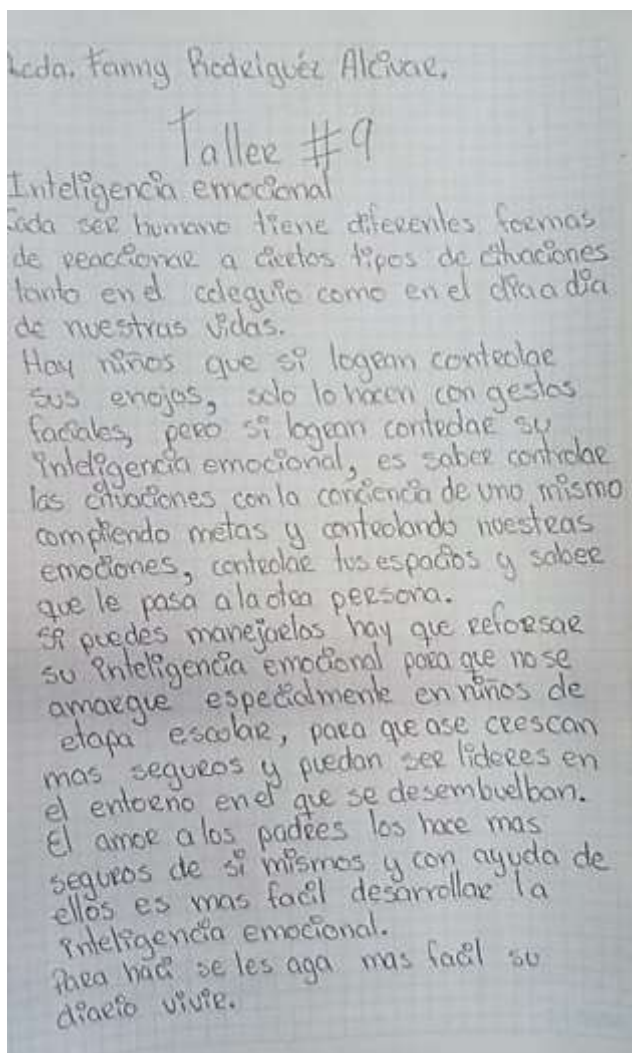 Lcda. Fanny Rodriguéz Alcivar.
Taller #9
Inteligencia emocional
Cada ser humano tiene diferentes formas
de reaccionar a ciertos tipos de cituaciones
tanto en el coleguio como en el dia a dia
de nuestras vidas.
Hay niños que si logran controlar
sus enojos, solo lo hacen con gestos
faciales, pero si logran controlar su
inteligencia emocional, es saber controlar
las cituaciones con la conciencia de uno mismo
compliendo metas y controlando nuestras
emociones, controlar tus espacios y saber
que le pasa a la otra persona.
Si puedes manejarlos hay que reforsar
su inteligencia emocional para que no se
amargue especialmente en niños de
etapa escolar, para que ase crescan
mas seguros y puedan ser lideres en
el entorno en el que se desembuelban.
El amor a los padres los hace mas
seguros de si mismos y con ayuda de
ellos es mas facil desarrollar la
inteligencia emocional.
Para haci se les aga mas facil su
diario vivir.